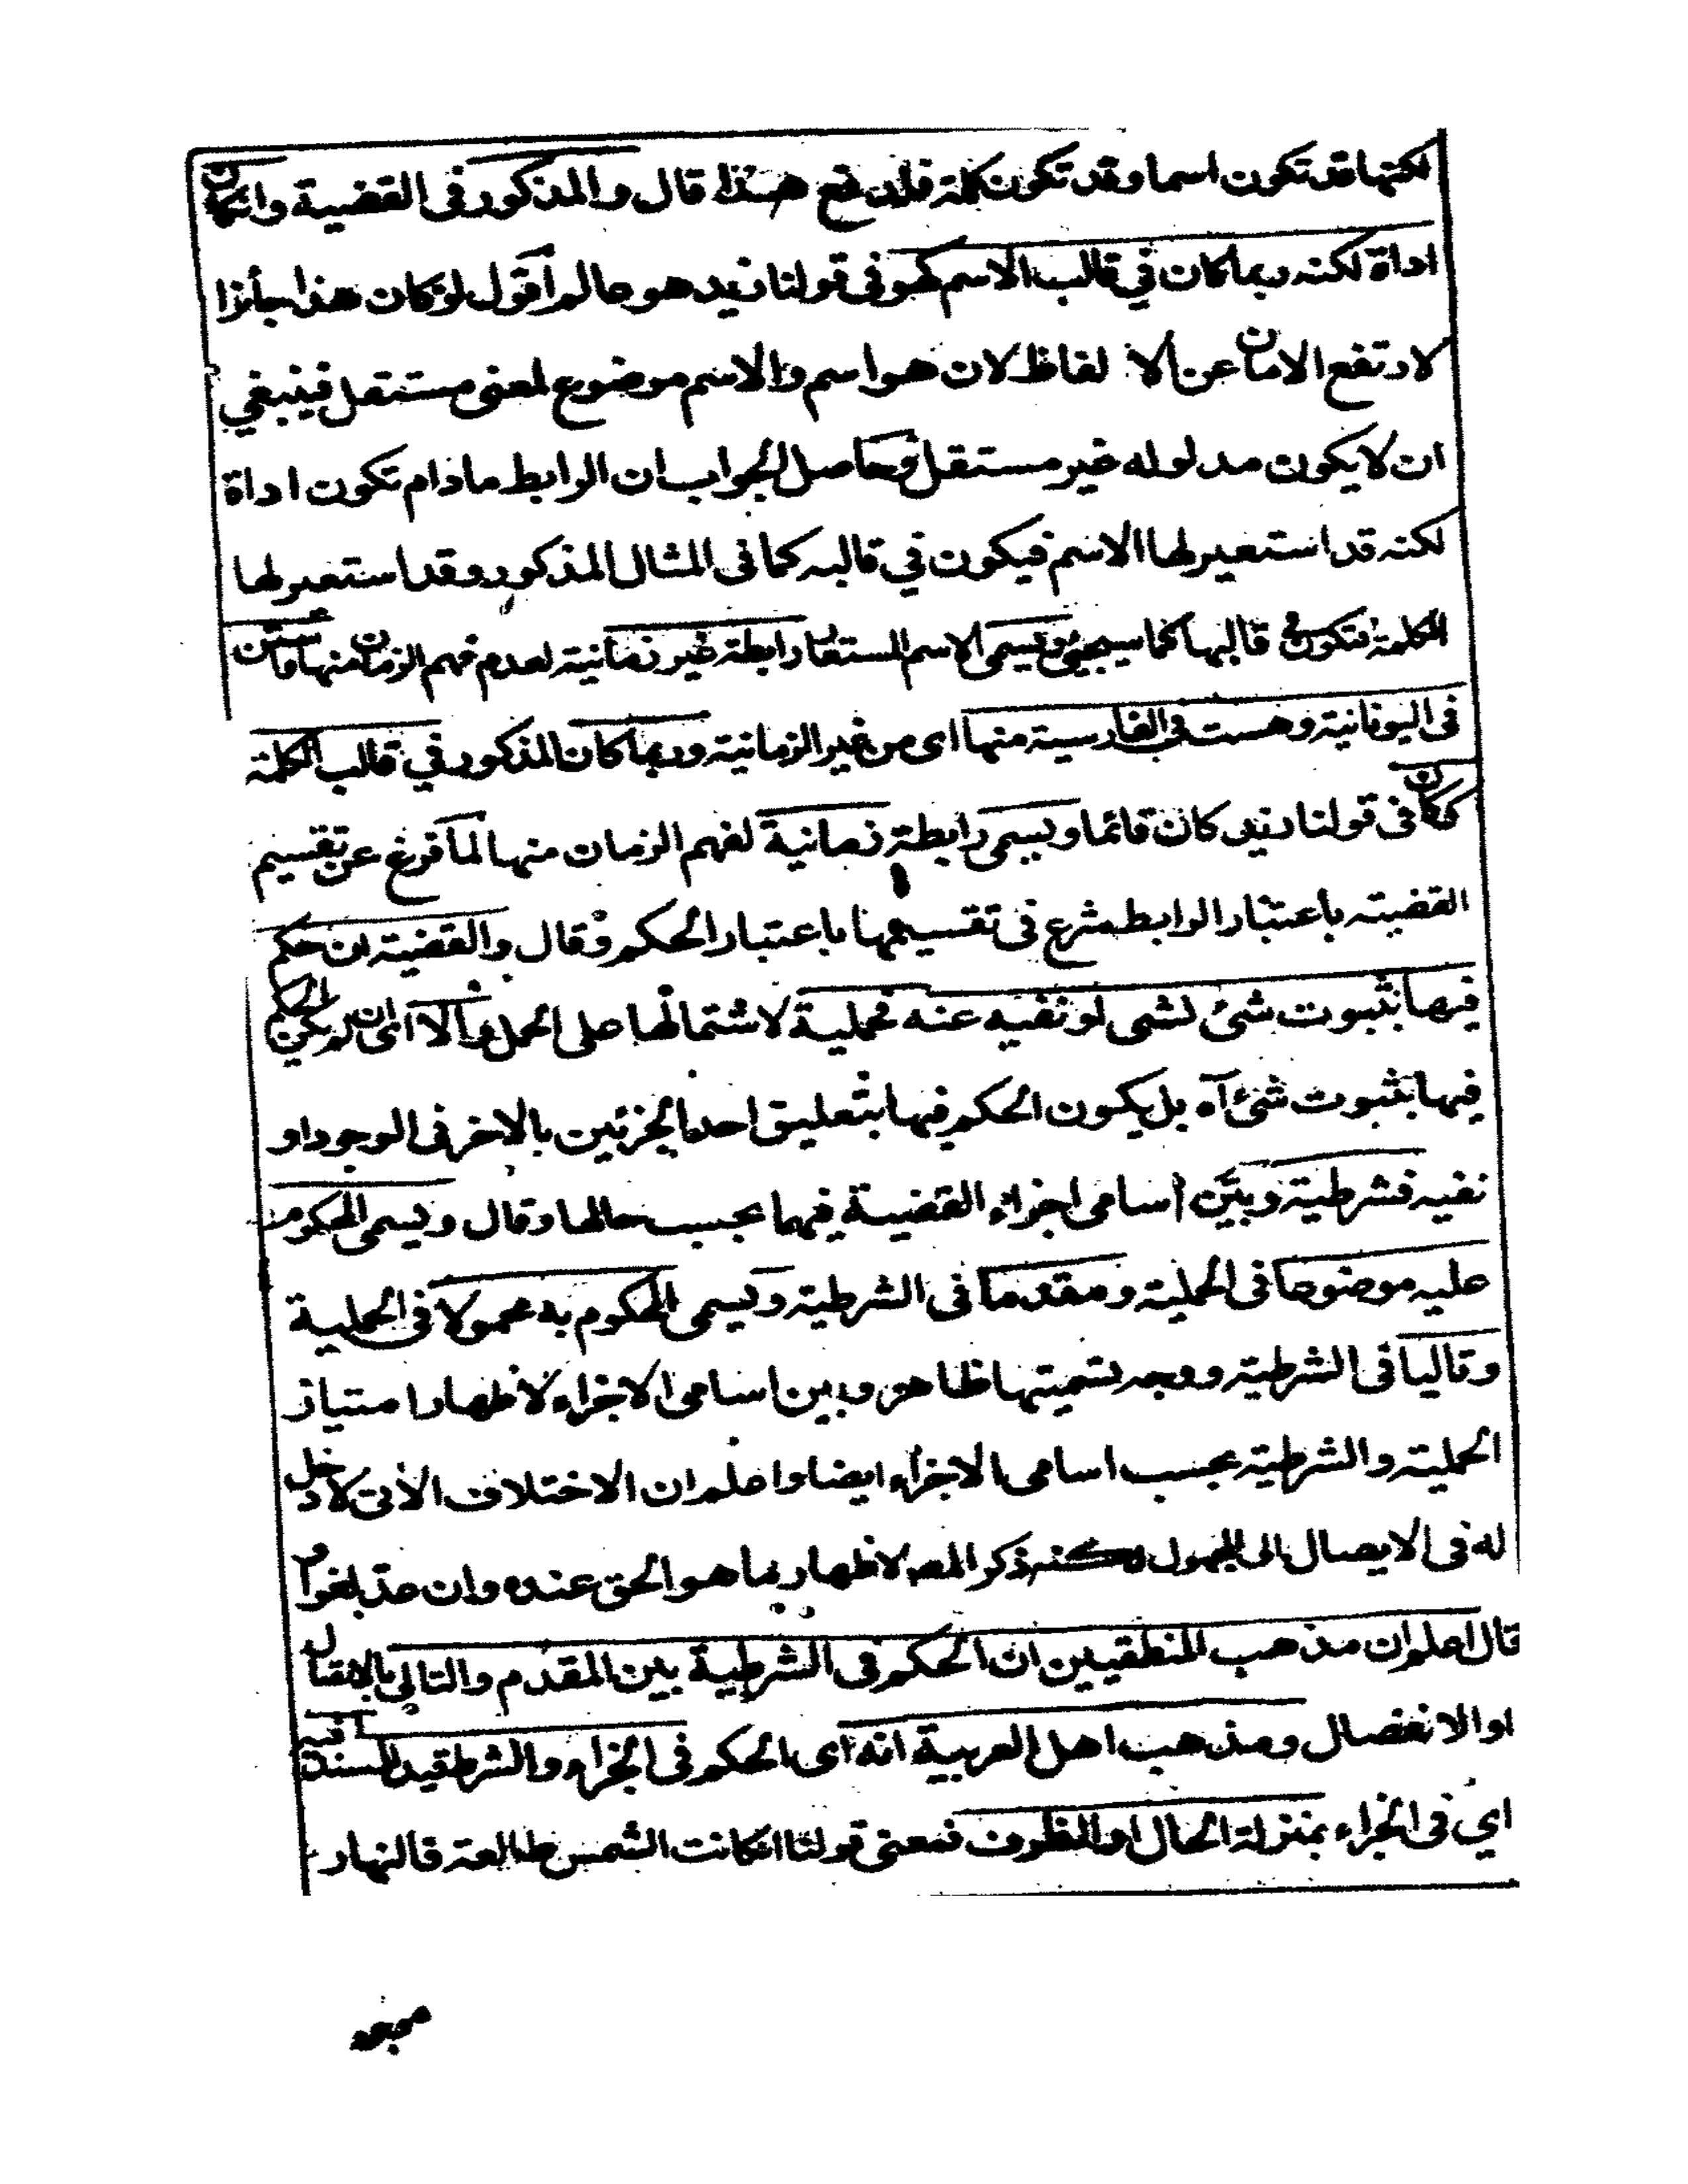 لكنها قد تكون اسما وقد تكون كلمة فلدفع هذا قال والمذكور فى القضية وان كان
اداة لكنه ربما كان في قالب الاسم كهو فى قولنا زيد هو عالم اقول لو كان هذا جائزا
لارتفع الامان عن الالفاظ لان هو اسم والاسم موضوع لمعنى مستقل فينبغي
ان لا يكون مدلوله غير مستقل وحاصل الجواب ان الرابط مادام تكون اداة
لكنه قد استعير لها الاسم فيكون في قالبه كما فى المثال المذكور وقد استعير لها
الكلمة فتكون فى قالبها كما سيجئ ويسمى الاسم المستعار رابطة غير زمانية لعدم فهم الزمان منها واستن
فى اليونانية وهست في الفارسية منها اى من غير الزمانية وربما كان المذكور في قالب الكلمة
ككان فى قولنا زيد كان قائما ويسمى رابطة زمانية لفهم الزمان منها لما فرغ عن تقسيم
القضية باعتبار الرابط شرع فى تقسيمها باعتبار الحكم وقال والقضية ان حكم
فيها بثبوت شئ لشى او نفيه عنه فحملية لاشتمالها على الحمل والا اى ان لم يكن الحكم
فيها بثبوت شئ آه بل يكون الحكم فيها بتعليق احد الجزئين بالاخر فى الوجود او
نفيه فشرطية وبين اسامى اجزاء القضية فيهما بحسب حالها وقال ويسمى المحكوم
عليه موضوعا فى الحملية ومقدما فى الشرطية ويسمى المحكوم به محمولا فى الحملية
وتاليا فى الشرطية ووجه تسميتها ظاهر وبين اسامى الاجزاء لاظهار امتياز
الحملية والشرطية بحسب اسامى الاجزاء ايضا واعلم ان الاختلاف الأتى لا دخل
له فى الايصال الى المجهول لكنه ذكر المصـ لاظهار بما هو الحق عنده وان عد لغوا و
قال اعلم ان مذهب المنطقيين ان الحكم فى الشرطية بين المقدم والتالي بالاتصال
او الانفصال ومذهب اهل العربية انه اى الحكم فى الجزاء والشرط قيد للمسند فيه
اي فى الجزاء بمنزلة الحال او الظرف فمعنى قولنا ان كانت الشمس طالعة فالنهار